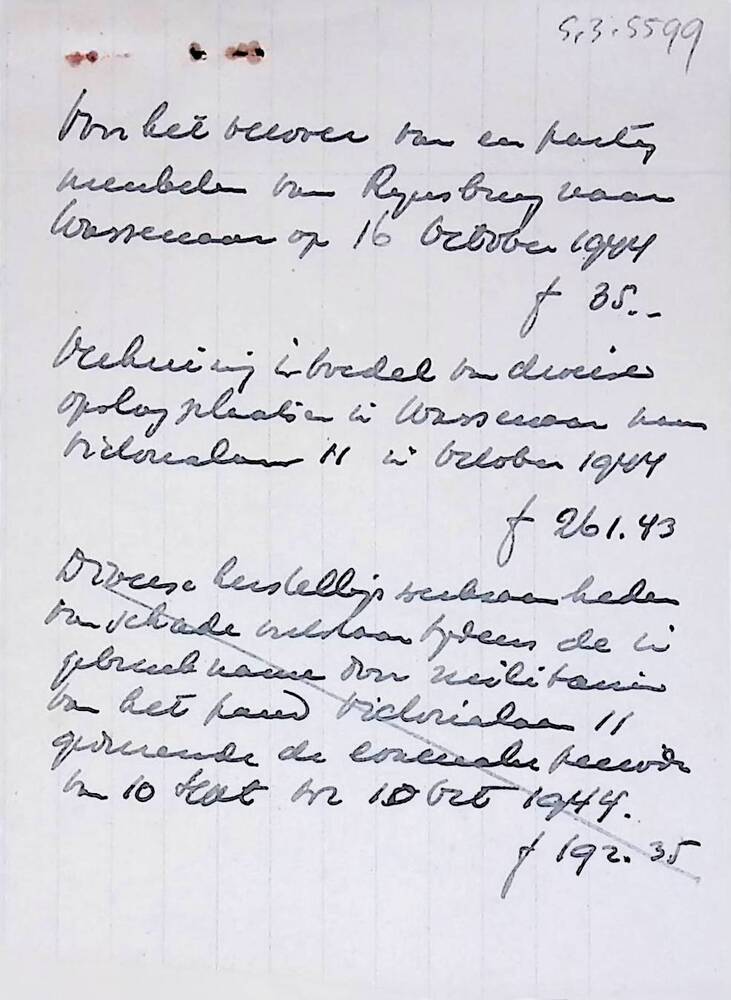 5.3.5599
Voor het vervoer van een partij
meubelen van Rijnsburg naar
Wassenaar op 16 October 1944
f 35.-
Verhuizing inboedel van diverse
opslagplaatsen in Wassenaar naar
Victorialaan 11 in October 1944
f 261.43
Diverse herstellings werkzaamheden
van schade ontstaan tijdens de in
gebruikname door militairen
van het pand Victorialaan 11
gedurende de evacuatie periode
van 10 Sept tot 10 Oct 1944.
f 192.35